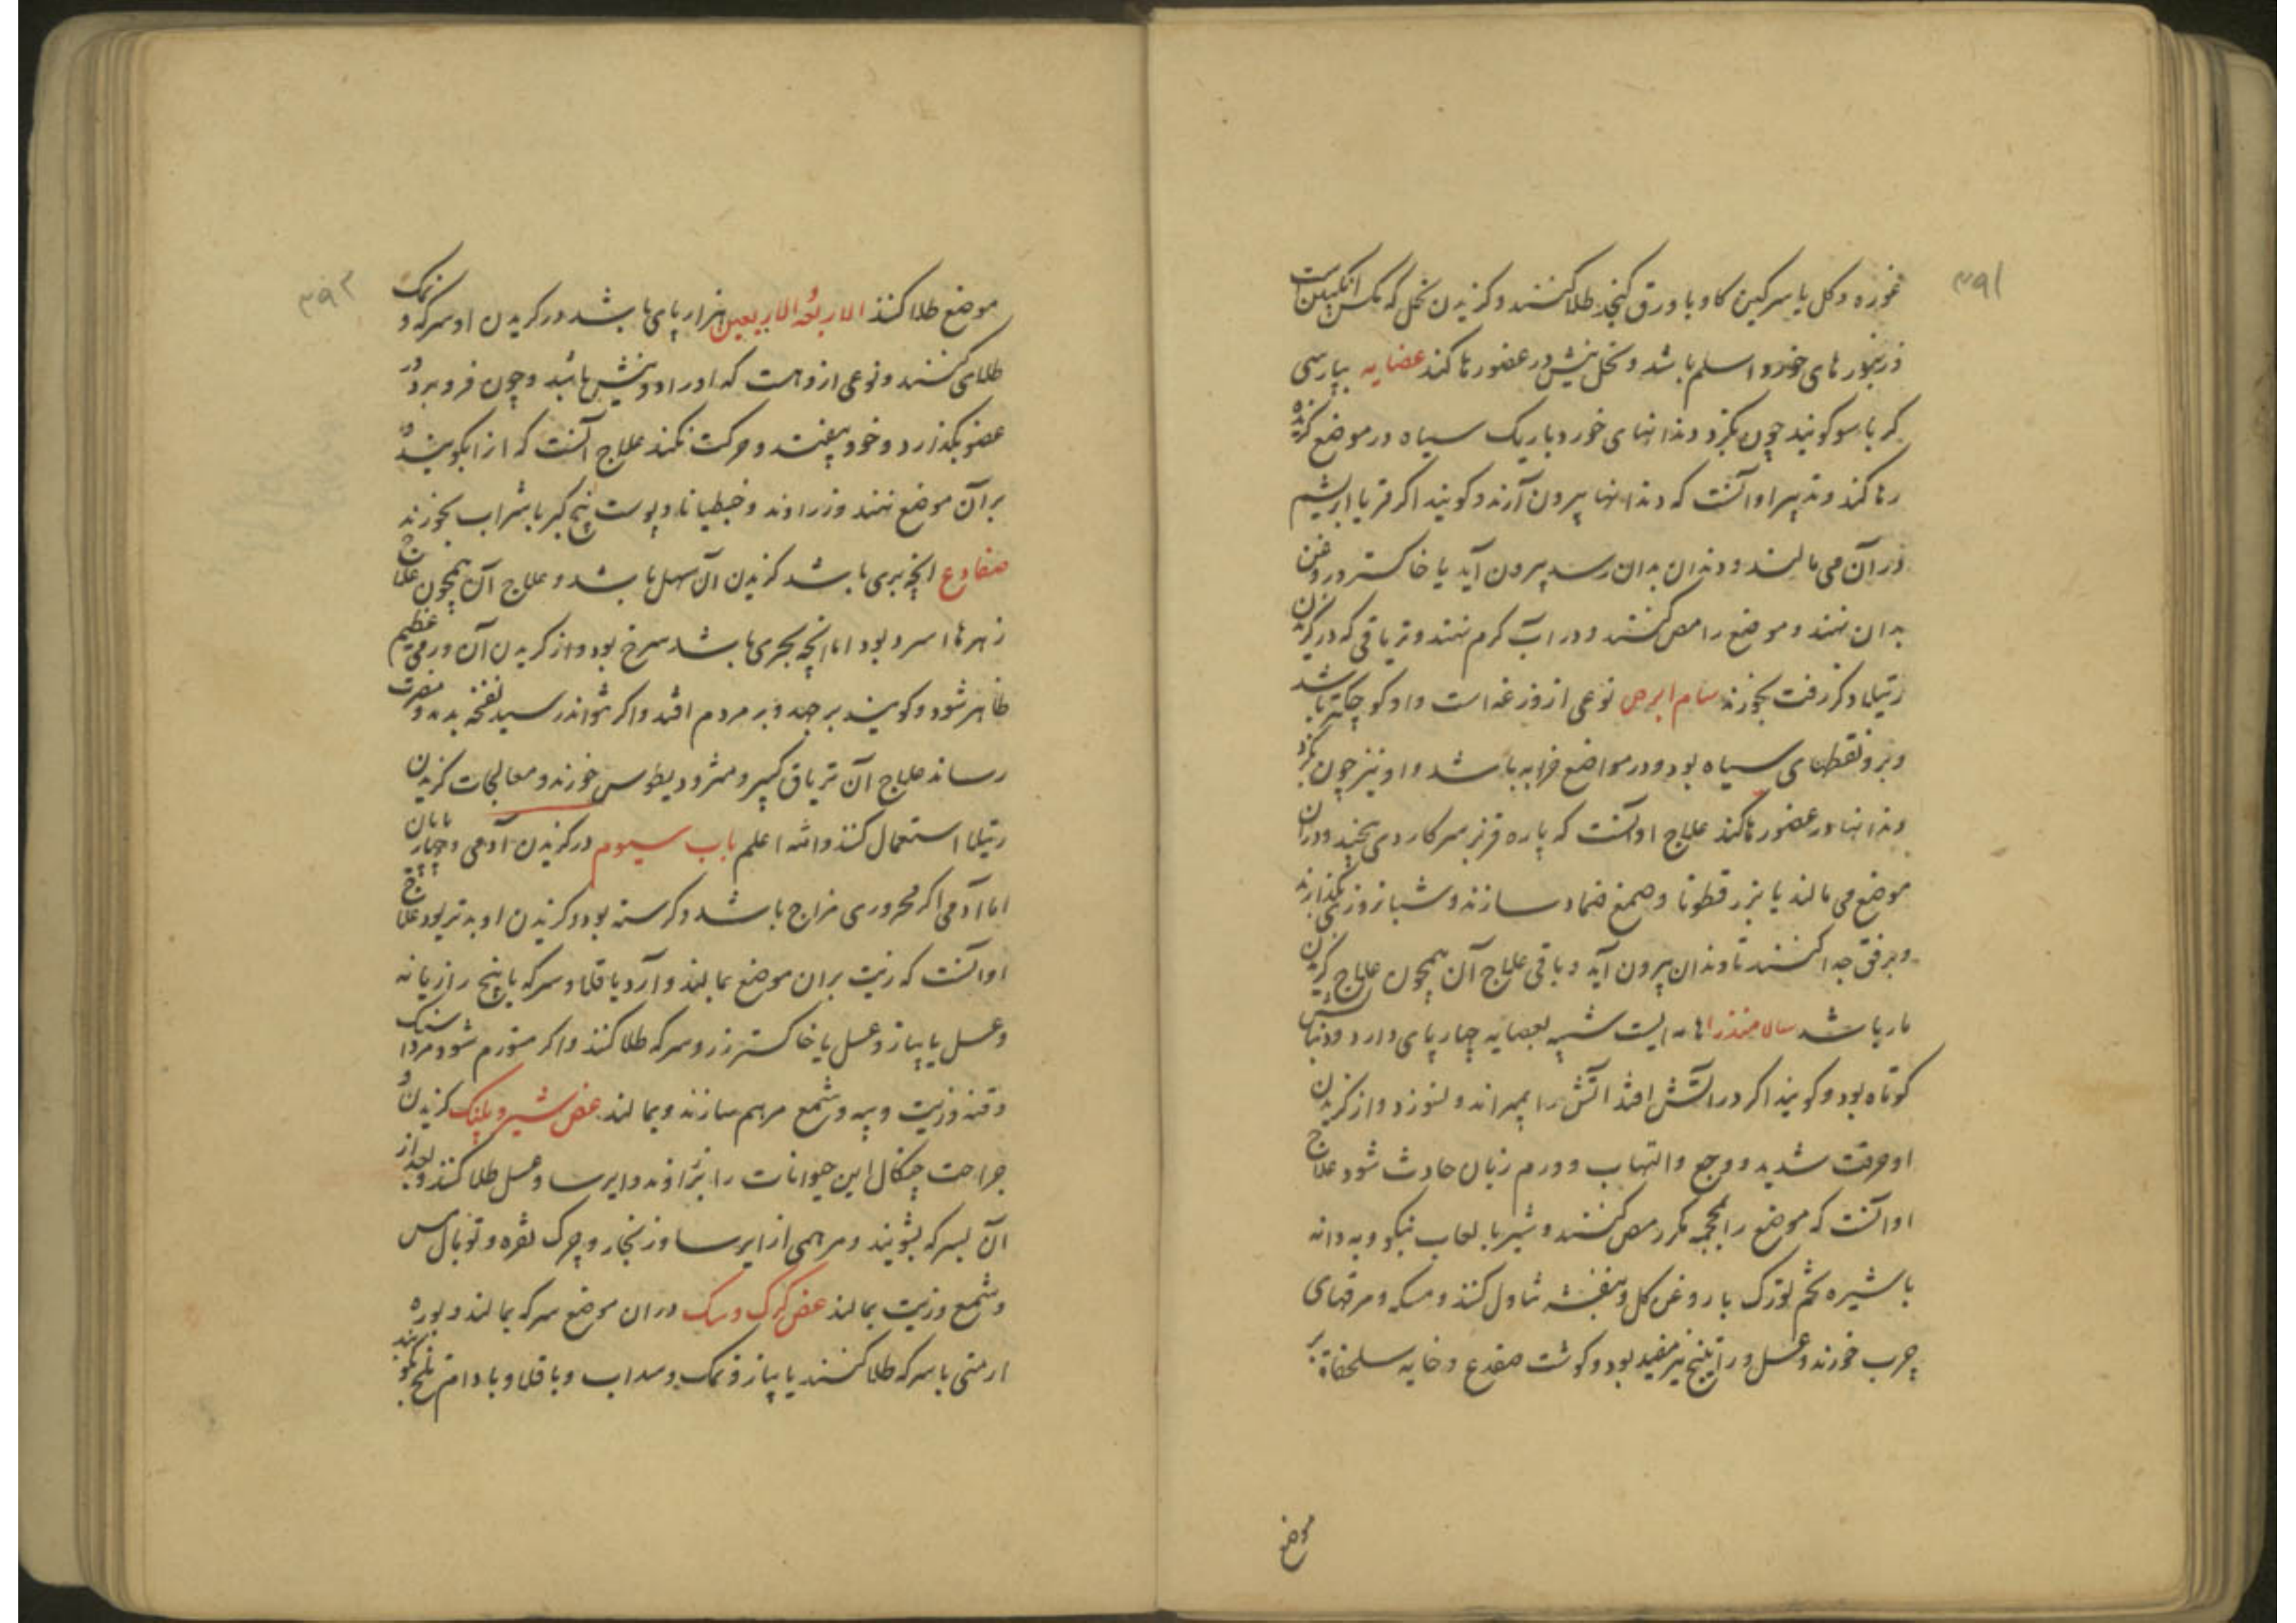 ۳۹۱
غوره و کل یا سرکین کاو با ورق کنجد طلا کنند و کزیدن نحل که مکس انکبین است
از زنبورهای خورد اسلم باشد و نحل نیش در عضو رها کند عضایه بپارسی
کرباسو کویند چون بکزد دندانهای خورد باریک سیاه در موضع کزیده
رها کند و تدبیر او آنست که دندانها بیرون آرند و کویند اکر قز یا ابریشم
در آن می مالند و دندان بدان رسد بیرون آید یا خاکستر و روغن
بدان نهند و موضع را مص کنند و در آب کرم نهند و تریاقی که در کزیدن
رتیلا ذکر رفت بخورند سام ابرص نوعی از وزغه است و او کوچکتر باشد
و برو نقطهای سیاه بود و در مواضع خرابه باشد و او نیز چون بکزد
دندانها در عضو رها کند علاج او آنست که پاره قز بر سر کارد می پیچند و در آن
موضع می مالند یا بزر قطونا و صمغ ضماد سازند و شبانروزی بگذارند
و برفق جدا کنند تا دندان بیرون آید و باقی علاج آن همچون علاج کزیدن
مار باشد سالامندرا هامه ایست شبیه بعضایه چهار پای دارد و دنبالش
کوتاه بود و کویند اکر در آتش افتد آتش را بمیراند و نسوزد و از کزیدن
او حرقت شدید و وجع و التهاب و ورم زبان حادث شود علاج
او آنست که موضع را بمحجمه مکرر مص کنند و شیر با لعاب نیکو و به دانه
با شیره تخم تورک با روغن کل و بنفشه تناول کنند و مسکه و مرقهای
چرب خورند و عسل و راتینج نیز مفید بود و کوشت ضفدع و خایه سلحفاة بر
موضع
۳۹۲
موضع طلا کنند الاربعة الاربعین هزار پای باشد در کزیدن او سرکه و نمک
طلای کنند و نوعی ازو هست که او را دو نیش باشد و چون فرو برد در
عضو بگذارد و خود بیفتد و حرکت نکند علاج آنست که او را بکویند و
بر آن موضع نهند و زراوند و جنطیانا و پوست بیخ کبر با شراب بخورند
ضفادع آنچه بری باشد کزیدن آن سهل باشد و علاج آن همچون علاج
زهرها سرد بود اما آنچه بحری باشد سرخ بود و از کزیدن آن ورمی عظیم
ظاهر شود و کویند برجهد و بر مردم افتد و اکر نتواند رسید نفخه بدمد و مضرت
رساند علاج آن تریاق کبیر و مثرودیطوس خورند و معالجات کزیدن
رتیلا استعمال کنند والله اعلم باب سیوم در کزیدن آدمی و چهارپایان
اما آدمی اکر محروری مزاج باشد و کرسنه بود کزیدن او بدتر بود علاج
او آنست که زیت بران موضع بمالند و آرد باقلا و سرکه یا بیخ رازیانه
و عسل یا پیاز و عسل یا خاکستر رز و سرکه طلا کنند و اکر متورم شود مرداسنک
و قنه و زیت و پیه و شمع مرهم سازند و بمالند عض شیر و پلنک کزیدن و
جراحت چنکال این حیوانات را بزراوند و ایرسا و عسل طلا کنند و بعد از
آن بسرکه بشویند و مرهمی از ایرسا و زنجار و چرک نقره و توبال مس
و شمع و زیت بمالند عض کرک و سک در آن موضع سرکه بمالند و بوره
ارمنی با سرکه طلا کنند یا پیاز و نمک و سداب و باقلا و بادام تلخ بکوبند